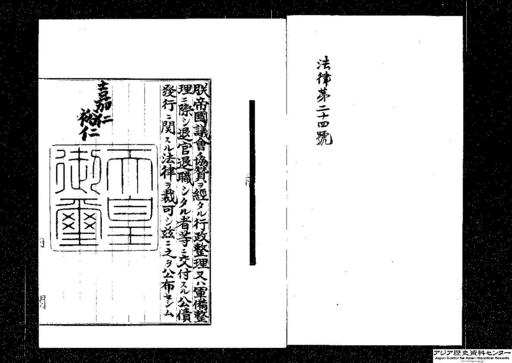 法律第二十四號
朕帝國議會ノ協贊ヲ經タル行政整理又ハ軍備整
理ニ際シ退官退職シタル者等ニ交付スル公債
發行ニ關スル法律ヲ裁可シ玆ニ之ヲ公布セシム
嘉仁
裕仁
天皇
御璽
アジア歴史資料センター
Japan Center for Asian Historical Records